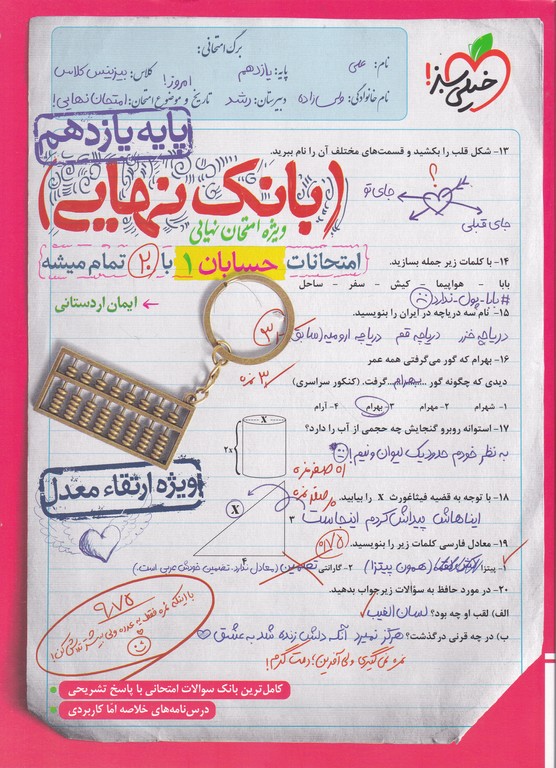 برگ امتحانی:
نام: علی
پایه: یازدهم
کلاس: بیزینس کلاس
نام خانوادگی: ولی‌زاده
دبیرستان: رشد
تاریخ و موضوع امتحان: امروز! امتحان نهایی!
خیلی سبز!
پایه یازدهم
۱۳- شکل قلب را بکشید و قسمت‌های مختلف آن را نام ببرید.
؟
جای تو
جای قبلی
(بانک نهایی)
ویژه امتحان نهایی
امتحانات حسابان ۱ با ۲۰ تمام میشه
ایمان اردستانی
۱۴- با کلمات زیر جمله بسازید.
بابا - هواپیما - کیش - سفر - ساحل
#بابا-پول-ندارد
۱۵- نام سه دریاچه در ایران را بنویسید.
دریاچه خزر دریاچه قم دریاچه ارومیه (سابق)
۱۶- بهرام که گور می‌گرفتی همه عمر
دیدی که چگونه گور ...بهرام... گرفت. (کنکور سراسری)
۳ نمره
۱- شهرام ۲- مهرام ۳- بهرام ۴- آرام
۱۷- استوانه روبرو گنجایش چه حجمی از آب را دارد؟
به نظر خودم حدود یک لیوان و نیم!
X
2X
۱۸- با توجه به قضیه فیثاغورث X را بیابید.
ایناهاش پیداش کردم اینجاست
X
۳
۴
ویژه ارتقاء معدل
۱۹- معادل فارسی کلمات زیر را بنویسید.
۱- پیتزا (همون پیتزا) ۲- گارانتی تضمین (معادل ندارد. تضمین خودش عربی است)
۲۰- در مورد حافظ به سؤالات زیر جواب بدهید.
الف) لقب او چه بود؟ لسان الغیب
ب) در چه قرنی درگذشت؟ هرگز نمیرد آنکه دلش زنده شد به عشق
نمره نمی‌گیری ولی آفرین! دمت گرم!
۹/۷۵
کامل‌ترین بانک سوالات امتحانی با پاسخ تشریحی
درس‌نامه‌های خلاصه امّا کاربردی